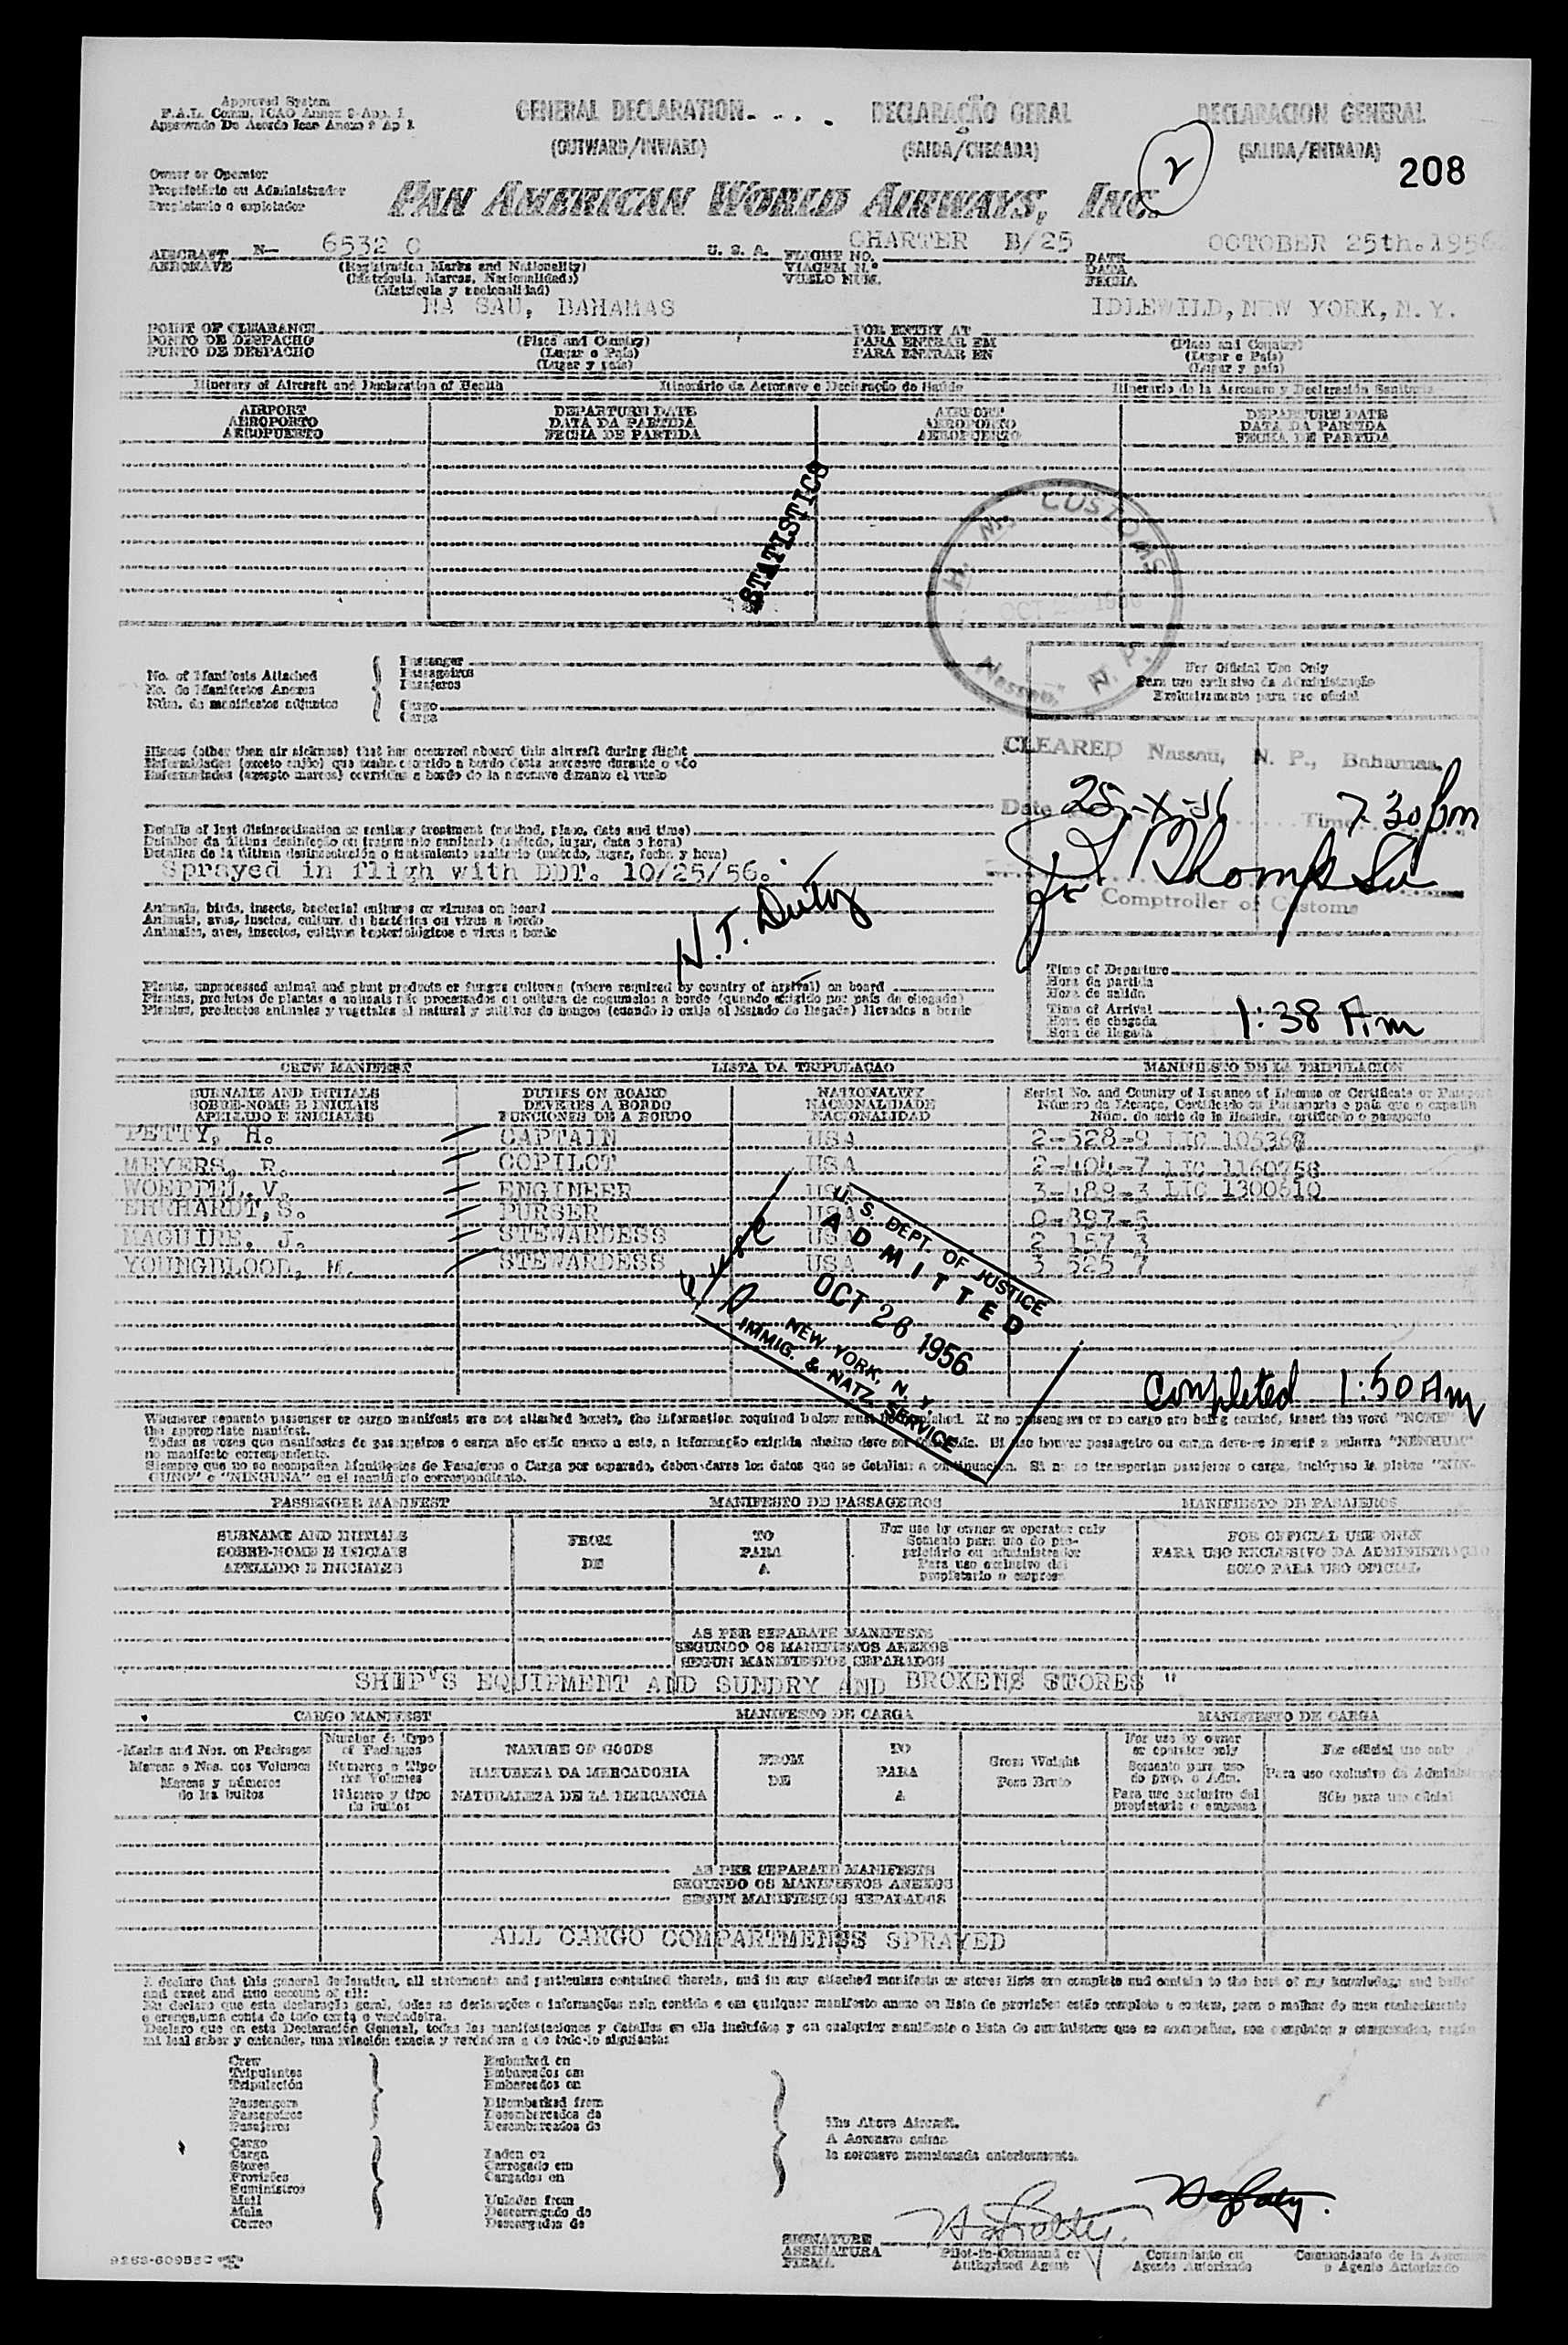 Approved System
F.A.L. Comm. ICAO Annex 9 App. 1
Approvado De Acordo Icao Anexo 9 Ap 1
GENERAL DECLARATION. . . . DECLARAÇÃO GERAL DECLARACION GENERAL
(OUTWARD/INWARD) (SAIDA/CHEGADA) (SALIDA/ENTRADA)
2
208
Owner or Operator
Proprietário ou Administrador
Propietario o explotador
PAN AMERICAN WORLD AIRWAYS, INC.
AIRCRAFT N— 6532 C U. S. A. FLIGHT NO. CHARTER B/25 DATE OCTOBER 25th.1956
AERONAVE (Registration Marks and Nationality) VIAGEM N.º DATA
(Matrícula, Marcas, Nacionalidade) VUELO NUM. FECHA
(Matrícula y nacionalidad)
NA SAU, BAHAMAS IDLEWILD, NEW YORK, N.Y.
POINT OF CLEARANCE FOR ENTRY AT
PONTO DE DESPACHO (Place and Country) PARA ENTRAR EM (Place and Country)
PUNTO DE DESPACHO (Lugar e País) PARA ENTRAR EN (Lugar e País)
(Lugar y país) (Lugar y país)
Itinerary of Aircraft and Declaration of Health Itinerário da Aeronave e Declaração de Saúde Itinerario de la Aeronave y Declaración Sanitaria
AIRPORT DEPARTURE DATE AIRPORT DEPARTURE DATE
AEROPORTO DATA DA PARTIDA AEROPORTO DATA DA PARTIDA
AEROPUERTO FECHA DE PARTIDA AEROPUERTO FECHA DE PARTIDA
STATISTICS
H. M. CUSTOMS
OCT 1956
Nassau, N. P.
Passenger
No. of Manifests Attached Passageiros
No. de Manifestos Anexos Pasajeros
Núm. de manifiestos adjuntos Cargo
Carga
For Official Use Only
Para uso exclusivo da Administração
Exclusivamente para uso oficial
Illness (other than air sickness) that has occurred aboard this aircraft during flight
Enfermidades (exceto enjôo) que tenha ocorrido a bordo desta aeronave durante o vôo
Enfermedades (excepto mareos) ocurridas a bordo de la aeronave durante el vuelo
CLEARED Nassau, N. P., Bahamas.
Date 25-X-56 Time 7.30 pm
Comptroller of Customs
Details of last disinsectisation or sanitary treatment (method, place, date and time)
Detalhes da última desinfeção ou tratamento sanitario (método, lugar, data e hora)
Detalles de la última desinsectación o tratamiento sanitario (método, lugar, fecha y hora)
Sprayed in fligh with DDT. 10/25/56.
Animals, birds, insects, bacterial cultures or viruses on board
Animais, aves, insetos, cultura de bactérias ou virus a bordo
Animales, aves, insectos, cultivos bacteriológicos o virus a bordo
Plants, unprocessed animal and plant products or fungus cultures (where required by country of arrival) on board
Plantas, produtos de plantas e animais não processados ou cultura de cogumelos a bordo (quando exigido por país de chegada)
Plantas, productos animales y vegetales al natural y cultivos de hongos (cuando lo exija el Estado de llegada) llevados a bordo
Time of Departure
Hora da partida
Hora de salida
Time of Arrival 1:38 Am
Hora de chegada
Hora de llegada
CREW MANIFEST LISTA DA TRIPULAÇAO MANIFIESTO DE LA TRIPULACION
SURNAME AND INITIALS DUTIES ON BOARD NATIONALITY Serial No. and Country of Issuance of License or Certificate or Passport
SOBRE-NOME E INICIAIS DEVERES A BORDO NACIONALIDADE Número da Licença, Certificado ou Passaporte e país que o expediu
APELLIDO E INICIALES FUNCIONES DE A BORDO NACIONALIDAD Núm. de serie de la licencia, certificado o pasaporte
PETTY, H. CAPTAIN USA 2-528-9 LIC 105367
MEYERS, R. COPILOT USA 2-404-7 LIC 1160758
WOEPPEL, V. ENGINEER USA 3-489-3 LIC 1300610
EHRHARDT, S. PURSER USA 0-397-5
MAGUIRE, J. STEWARDESS USA 2 157 3
YOUNGBLOOD, M. STEWARDESS USA 3 525 7
U. S. DEPT. OF JUSTICE
ADMITTED
OCT 26 1956
NEW YORK, N. Y.
IMMIG. & NATZ. SERVICE
Completed 1:50 Am
Whenever separate passenger or cargo manifests are not attached hereto, the information required below must be furnished. If no passengers or no cargo are being carried, insert the word "NONE"
the appropriate manifest.
Todas as vezes que manifestos de passageiros e carga não estão anexo a este, a informação exigida abaixo deve ser Si não houver passageiro ou carga deve-se inserir a palavra "NENHUM"
no manifesto correspondente.
Siempre que no se acompañen Manifiestos de Pasajeros o Carga por separado, deben darse los datos que se detallan a continuación. Si no se transportan pasajeros o carga, inclúyase la palabra "NIN-
GUNO" o "NINGUNA" en el manifiesto correspondiente.
PASSENGER MANIFEST MANIFESTO DE PASSAGEIROS MANIFIESTO DE PASAJEROS
SURNAME AND INITIALS FROM TO For use by owner or operator only FOR OFFICIAL USE ONLY
SOBRE-NOME E INICIAIS DE PARA Somente para uso do pro- PARA USO EXCLUSIVO DA ADMINISTRAÇÃO
APELLIDO E INICIALES A prietário ou administrador SOLO PARA USO OFICIAL
Para uso exclusivo del
propietario o empresa
AS PER SEPARATE MANIFESTS
SEGUNDO OS MANIFESTOS ANEXOS
SEGUN MANIFIESTOS SEPARADOS
SHIP'S EQUIPMENT AND SUNDRY AND BROKENS STORES "
CARGO MANIFEST MANIFESTO DE CARGA MANIFIESTO DE CARGA
Marks and Nos. on Packages Number & Type of Packages NATURE OF GOODS FROM TO Gross Weight For use by owner or operator only For official use only
Marcas e Nos. nos Volumes Números e Tipo dos Volumes NATUREZA DA MERCADORIA DE PARA Peso Bruto Somente para uso do prop. o Adm. Para uso exclusivo da Administração
Marcas y números de los bultos Número y tipo de bultos NATURALEZA DE LA MERCANCIA A Para uso exclusivo del propietario o empresa Sólo para uso oficial
AS PER SEPARATE MANIFESTS
SEGUNDO OS MANIFESTOS ANEXOS
SEGUN MANIFIESTOS SEPARADOS
ALL CARGO COMPARTMENSS SPRAYED
I declare that this general declaration, all statements and particulars contained therein, and in any attached manifests or stores lists are complete and contain to the best of my knowledge and belief
and exact and true account of all:
Eu declaro que esta declaração geral, todas as declarações e informações nela contida e em qualquer manifesto anexo ou lista de provisões estão completo e contem, para o melhor do meu conhecimento
e crença, uma conta de todo exata e verdadeira.
Declaro que en esta Declaración General, todas las manifestaciones y detalles en ella incluídos y en cualquier manifiesto o lista de suministros que se acompañan, son completos y comprenden, según
mi leal saber y entender, una relación exacta y verdadera a de todo lo siguiente:
Crew Embarked on
Tripulantes Embarcados em
Tripulación Embarcados en
Passengers Disembarked from
Passageiros Desembarcados de
Pasajeros Desembarcados de
Cargo
Carga Laden on
Stores Carregado em
Provisões Cargados en
Suministros
Mail Unladen from
Mala Descarregado de
Correo Descargados de
The Above Aircraft.
A Aeronave acima
la aeronave mencionada anteriormente.
SIGNATURE
ASSINATURA Pilot-in-Command or Comandante ou Commandante de la Aeronave
FIRMA Authorized Agent Agente Autorizado o Agente Autorizado
9263-60955C